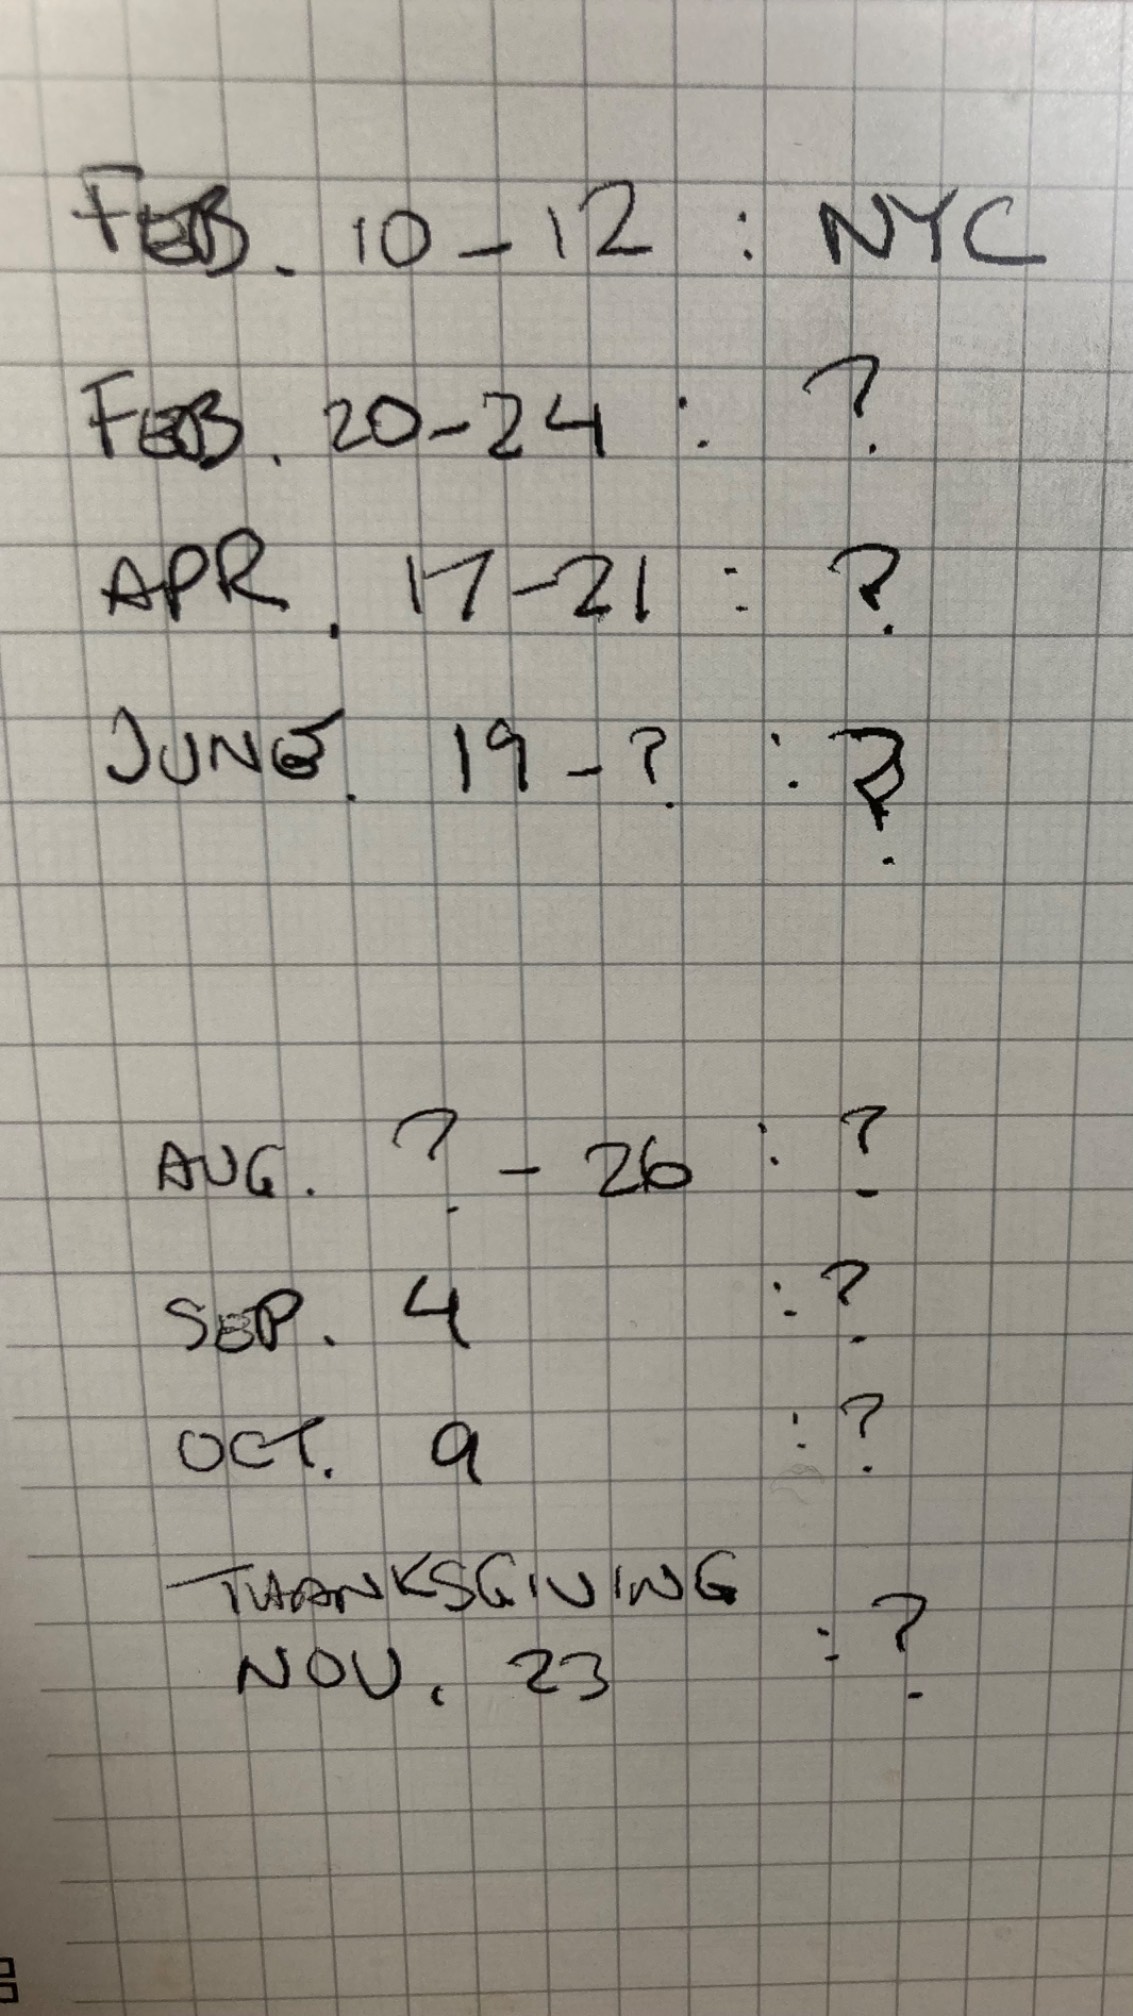 FEB. 10-12 : NYC
FEB. 20-24 : ?
APR. 17-21 : ?
JUNE. 19-? : ?
AUG. ?-26 : ?
SEP. 4 : ?
OCT. 9 : ?
THANKSGIVING
NOV. 23 : ?